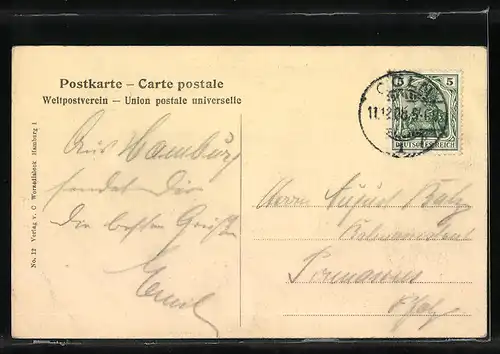 Postkarte – Carte postale
Weltpostverein – Union postale universelle
No. 12 Verlag v. C Worzedialeck Hamburg 1
Aus Hamburg
sendet Dir
die besten Grüße
Emil
5
DEUTSCHES REICH
11.12.06
Herrn August
Pirmasens
Pfalz